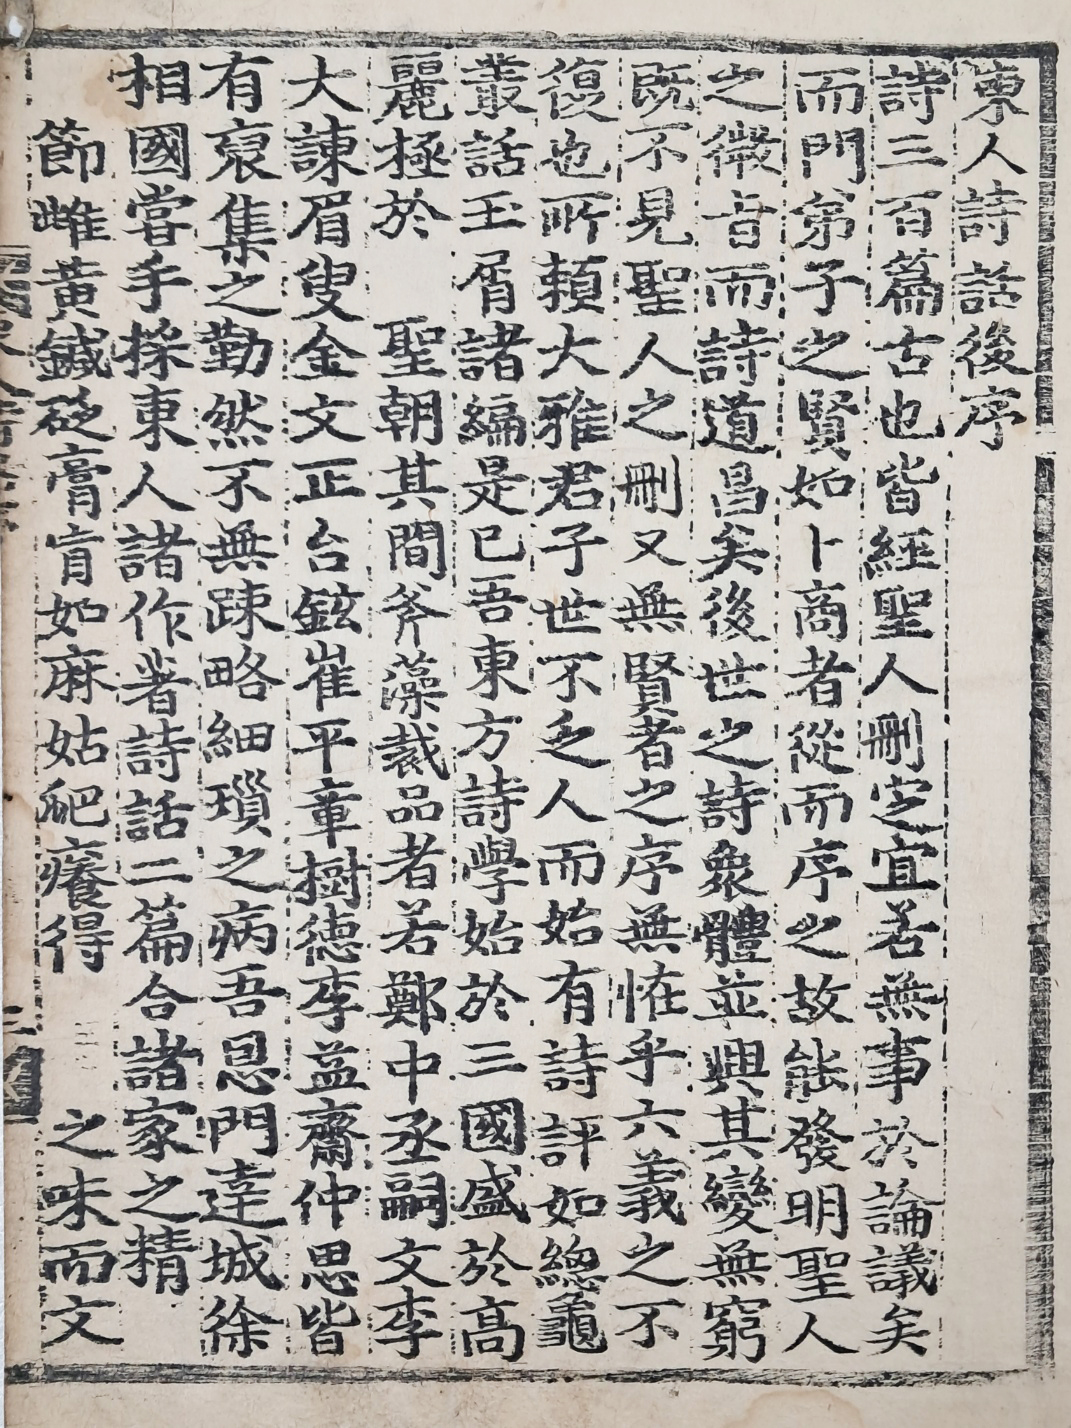 東人詩話後序
詩三百篇古也皆經聖人刪定宜若無事於論議矣
而門第子之賢如卜商者從而序之故能發明聖人
之微旨而詩道昌矣後世之詩衆體並興其變無窮
旣不見聖人之刪又無賢者之序無怪乎六義之不
復也所賴大雅君子世不乏人而始有詩評如總龜
叢話玉屑諸編是已吾東方詩學始於三國盛於高
麗極於 聖朝其間斧藻裁品者若鄭中丞嗣文李
大諫眉叟金文正台鉉崔平章樹德李益齋仲思皆
有裒集之勤然不無踈略細瑣之病吾恩門達城徐
相國嘗手採東人諸作著詩話二篇合諸家之精
節雌黃鍼砭膏肓如麻姑爬癢得 之味而文